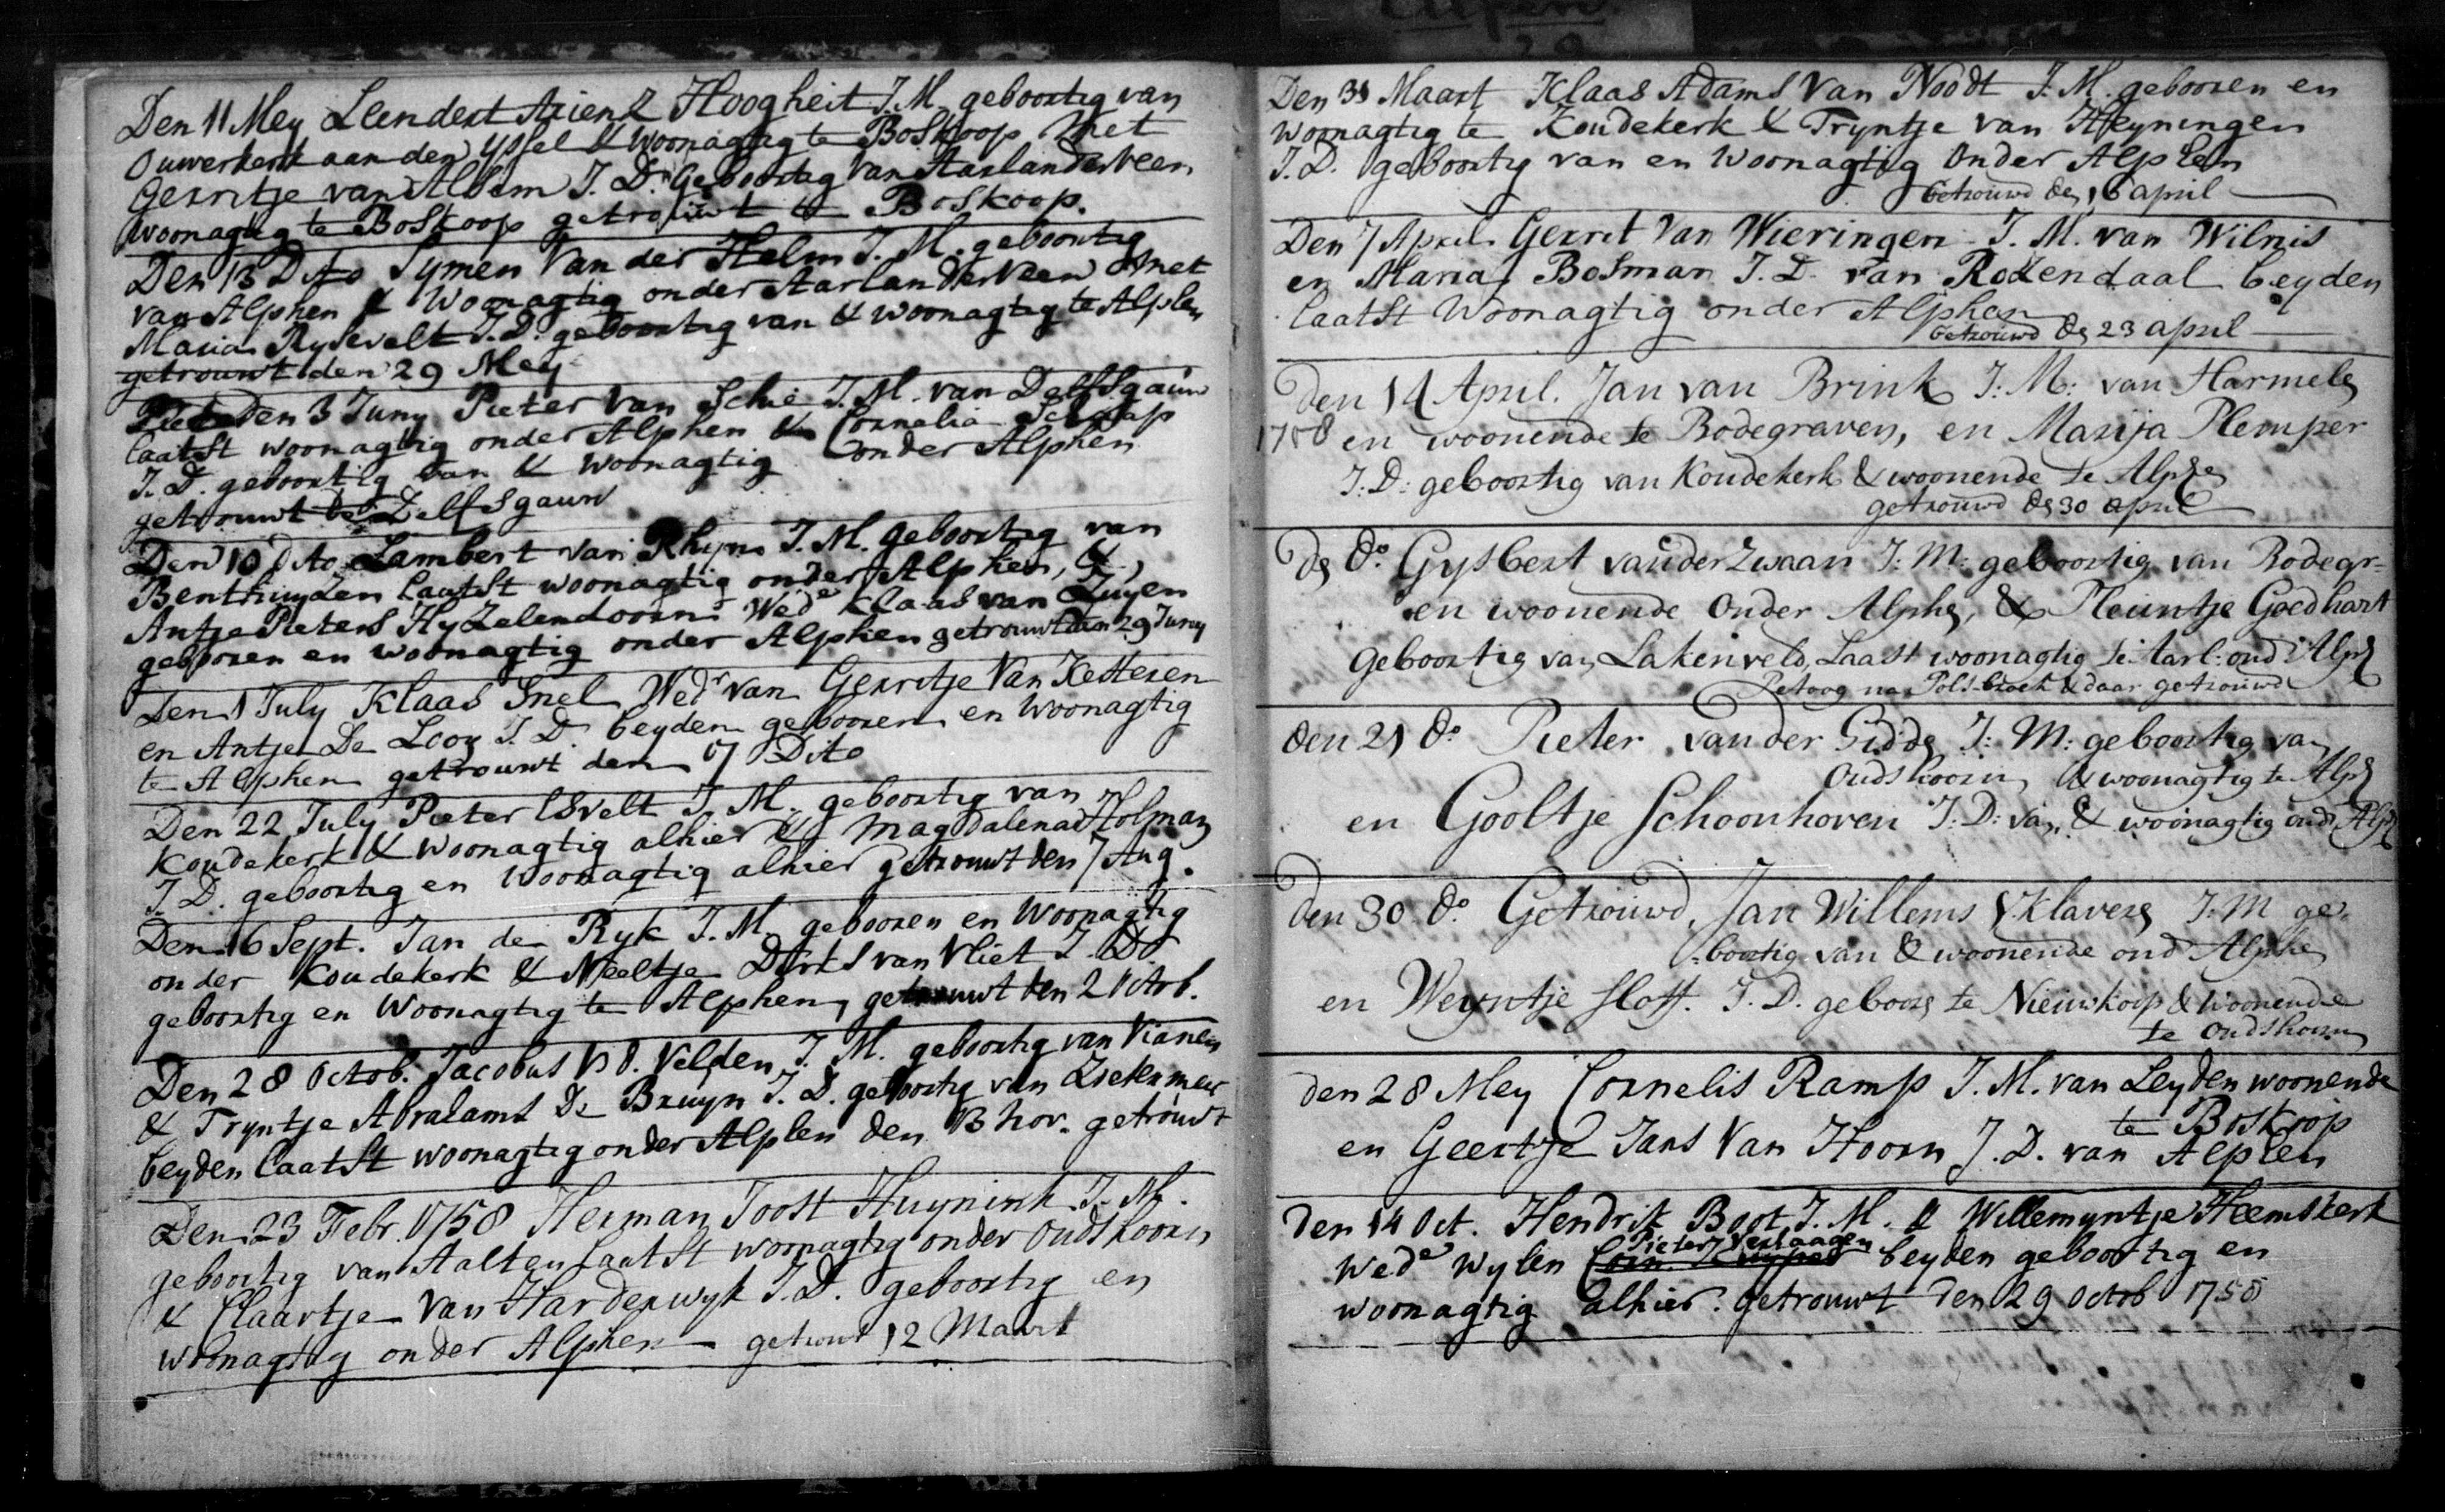 Den 11 Mey Leendert Ariens Hoogheit J.M. geboortig van
Ouwerkerk aan den yssel & woonagtig te Boskoop met
Gerritje van Alblem J. D. Geboortig van Aarlanderveen
woonagtig te Boskoop getrouwt te Boskoop.
Den 13 Dito Symen Van der Helm J. M. geboortig
van Alphen & Woonagtig onder Aarlanderveen met
Maria Rysevelt J. D. geboortig van & woonagtig te Alphen
getrouwt den 29 Mey
Den 3 Juny Pieter Van Schie J. M. van Delfsgauw
laatst woonagtig onder Alphen & Cornelia Schaap
J. D. geboortig van & Woonagtig onder Alphen
getrouwt te Delfsgauw
Den 10 dito Lambert van Rhyn J. M. geboortig van
Benthuyzen laatst woonagtig onder Alphen, &
Antje Pieters Hyzelendoorn Wede Klaas van Zuyen
gebooren en woonagtig onder Alphen getrouwt den 29 Juny
Den 1 July Klaas Snel Wedr van Gerritje Van Ketteren
en Antje De Looy J. D. beyden gebooren en woonagtig
te Alphen getrouwt den 17 Dito
Den 22 July Pieter Esvelt J. M. geboortig van
Koudekerk & woonagtig alhier & Magdalena Holman
J. D. geboortig en Woonagtig alhier getrouwt den 7 Aug.
Den 16 Sept. Jan de Ryk J. M. gebooren en Woonagtig
onder Koudekerk & Neeltje Dirks van Vliet J. D.
geboortig en Woonagtig te Alphen, getrouwt den 2 Octob.
Den 28 Octob. Jacobus V D. Velden J. M. geboortig van Vianen
& Tryntje Abrahams De Bruyn J. D. geboortig van Zietermeer
beyden laatst woonagtig onder Alphen den 13 Nov. getrouwt
Den 23 Febr. 1758 Herman Joost Huynink J. M.
geboortig van Aalten laatst woonagtig onder Oudshoorn
& Claartje Van Harderwyk J. D. geboortig en
woonagtig onder Alphen getrouwt 12 Maart
Den 31 Maart Klaas Adams Van Noodt J. M. gebooren en
woonagtig te Koudekerk & Tryntje van Heyningen
J. D. geboortig van en Woonagtig Onder Alphen
Getrouwd den 16 april
Den 7 April Gerrit Van Wieringen J. M. van Wilnis
en Maria Bosman J. D. van Rozendaal beyden
laatst Woonagtig onder Alphen
Getrouwd den 23 april
Den 14 April. Jan van Brink J: M: van Harmelen
1758 en woonende te Bodegraven, en Marija Plemper
J: D: geboortig van Koudekerk & woonende te Alphen
getrouwd den 30 april
den do. Gysbert van der Zwaan J: M: geboortig van Bodegr=
en woonende Onder Alphen, & Pleuntje Goedhart
Geboortig van Lakenveld, Laast woonagtig te Aarl: ond: Alph
Betoog na Polsbroek & daar getrouwd
den 21 do. Pieter van der Gidde J: M: geboortig van
Oudshoorn & woonagtig te Alph
en Gooltje Schoonhoven J: D: van & woonagtig ond: Alph
den 30 do. Getrouwd, Jan Willems V. Klaveren J: M ge=
boortig van & woonende ond Alphen
en Weyntje Slot. J. D. geboore te Nieuwkoop & Woonende
te Oudshoorn
den 28 Mey Cornelis Ramp J. M. van Leyden woonende
te Boskoop
en Geertje Jans Van Hoorn J. D. van Alphen
den 14 Oct. Hendrik Boot J. M. & Willemyntje Heemskerk
Pieter Verlaagen
Wede Wylen Corn beyden geboortig en
woonagtig alhier. getrouwt den 29 Octob 1758